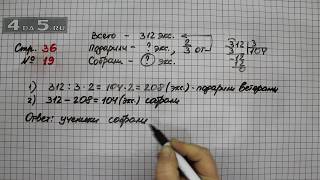 4DA5.RU
Стр. 36
№ 19
Всего – 312 экс.
Подарили – ? экс., 2/3 от
Собрали – ? экс.
312 3
3 104
12
12
0
1) 312 : 3 · 2 = 104 · 2 = 208 (экс) – подарили ветерану
2) 312 – 208 = 104 (экс) собрали
Ответ: ученики собрали